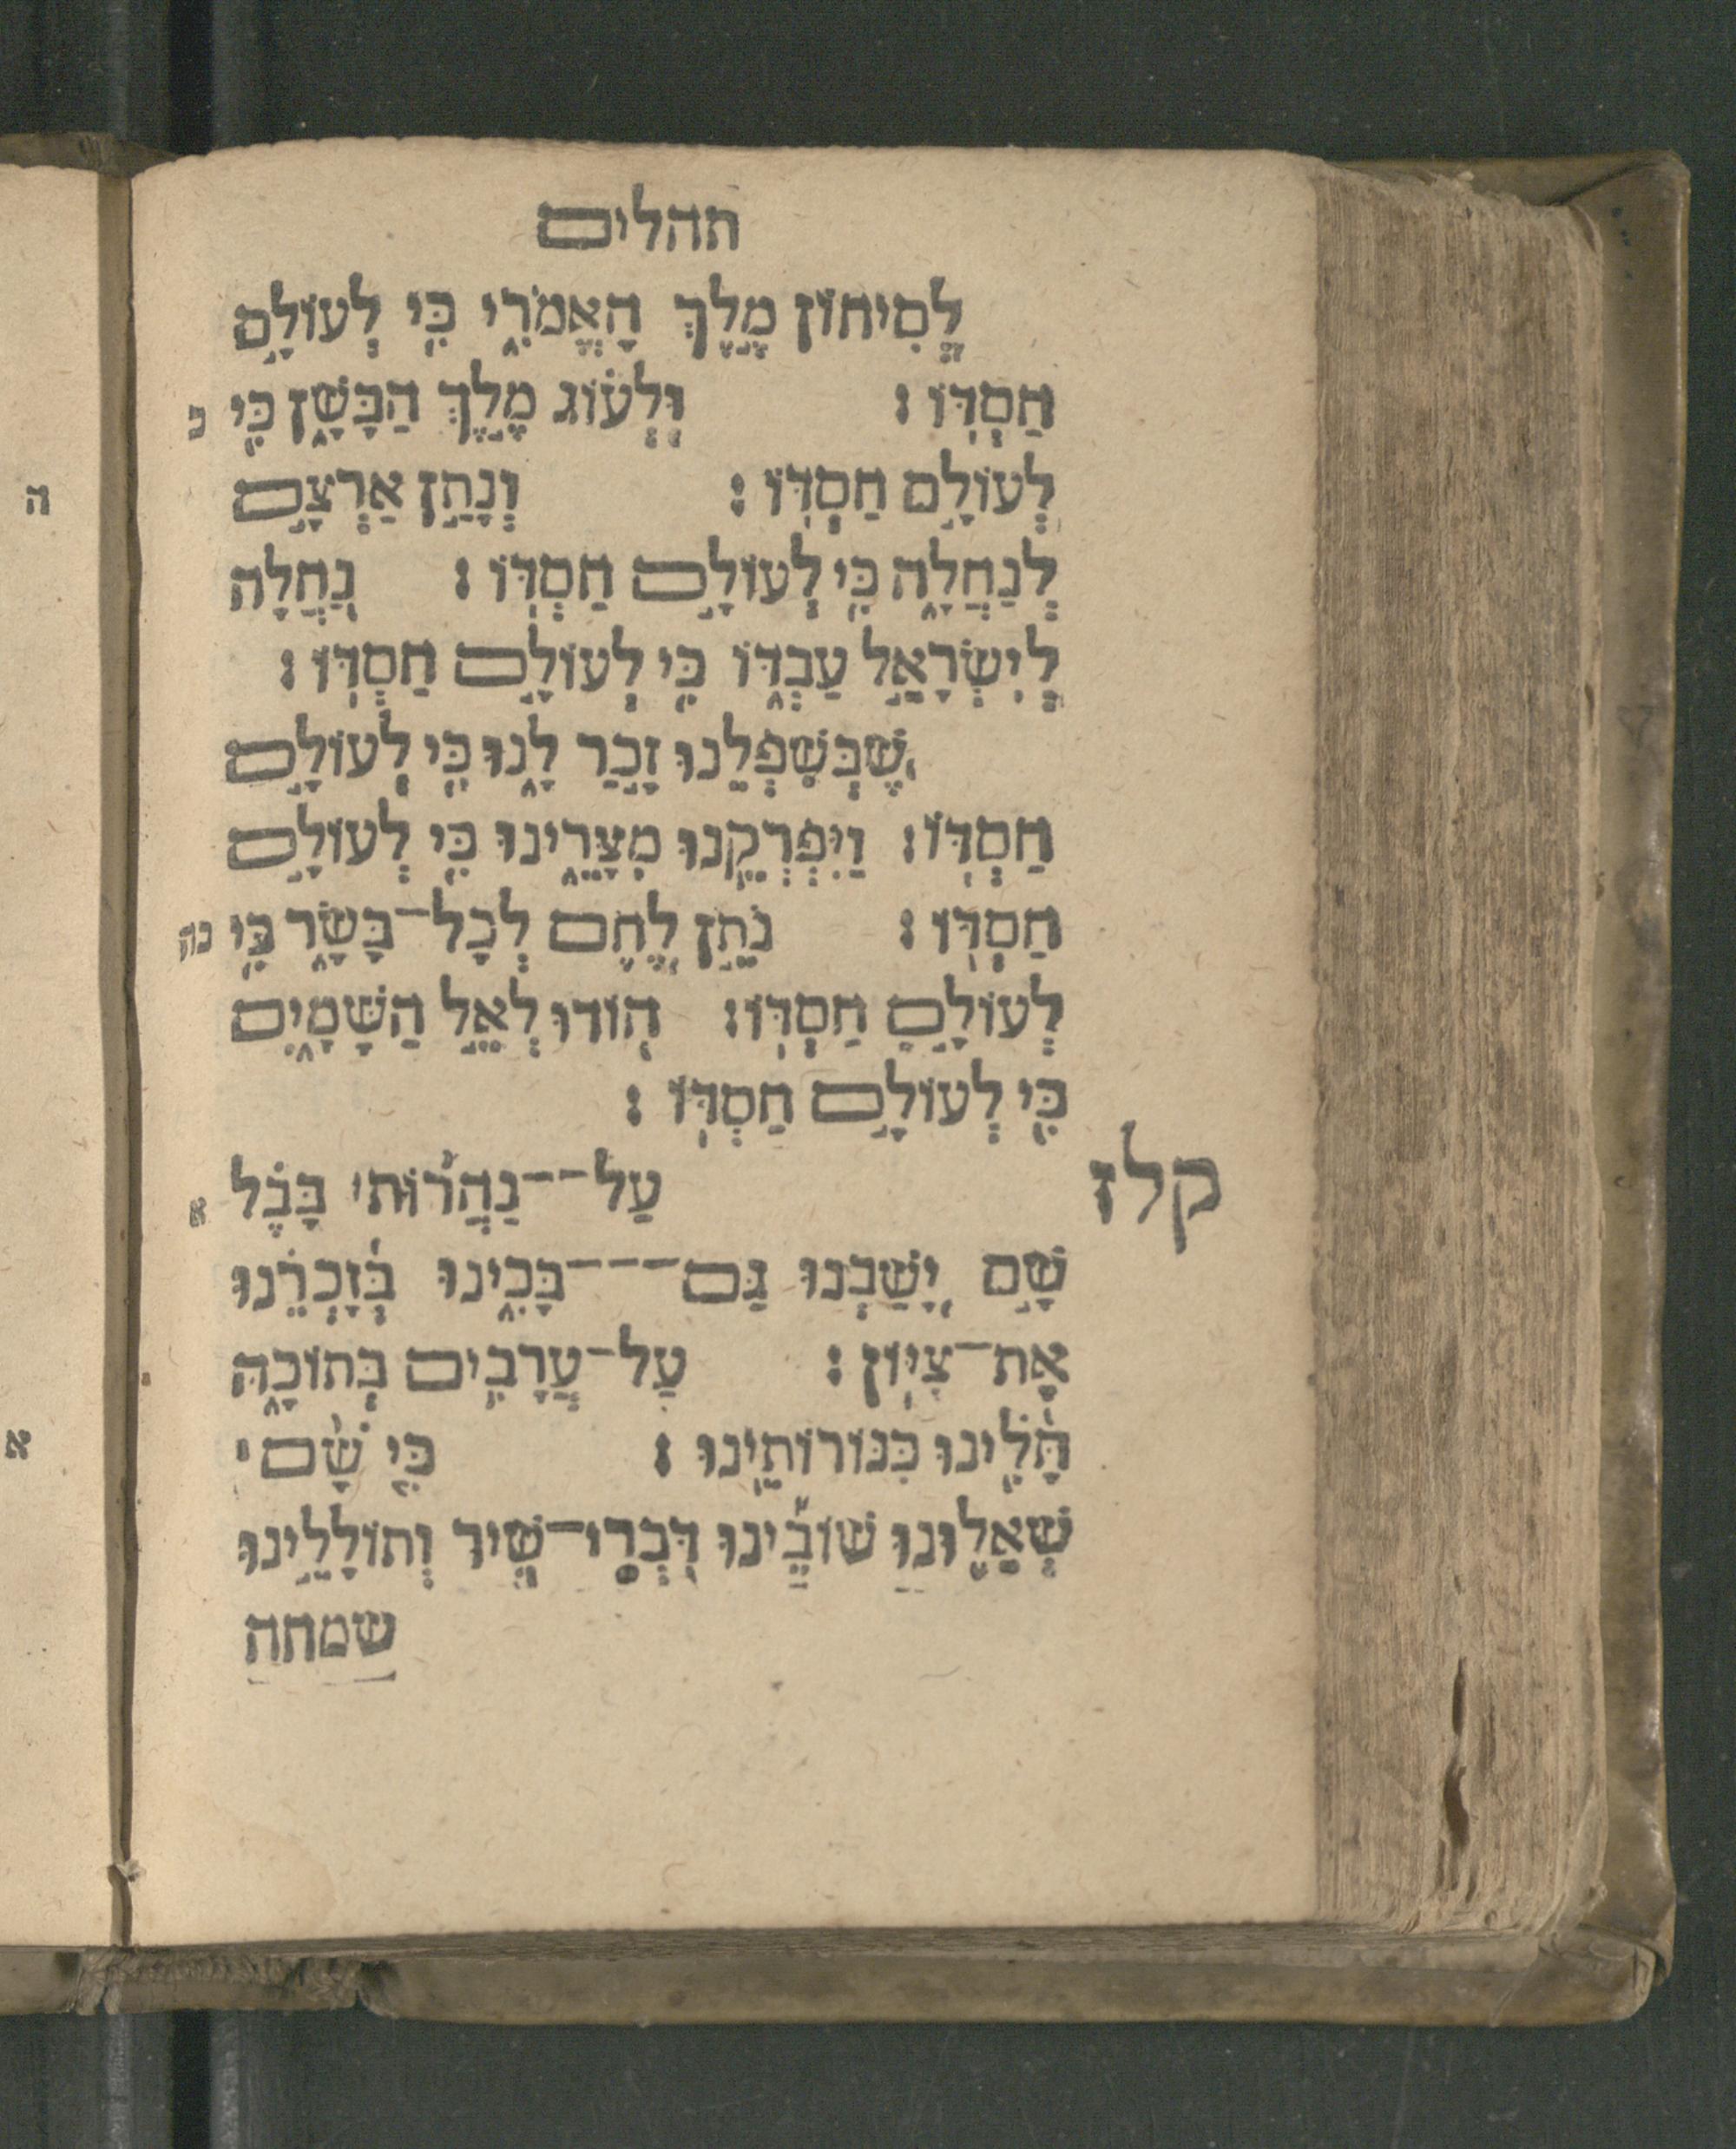 תהלים
לְסִיחוֹן מֶלֶךְ הָאֱמֹרִי כִּי לְעוֹלָם
חַסְדּוֹ: וּלְעוֹג מֶלֶךְ הַבָּשָׁן כִּי כ
לְעוֹלָם חַסְדּוֹ: וְנָתַן אַרְצָם
לְנַחֲלָה כִּי לְעוֹלָם חַסְדּוֹ: נַחֲלָה
לְיִשְׂרָאֵל עַבְדּוֹ כִּי לְעוֹלָם חַסְדּוֹ:
שֶׁבְּשִׁפְלֵנוּ זָכַר לָנוּ כִּי לְעוֹלָם
חַסְדּוֹ: וַיִּפְרְקֵנוּ מִצָּרֵינוּ כִּי לְעוֹלָם
חַסְדּוֹ: נֹתֵן לֶחֶם לְכָל־בָּשָׂר כִּי כה
לְעוֹלָם חַסְדּוֹ: הוֹדוּ לְאֵל הַשָּׁמָיִם
כִּי לְעוֹלָם חַסְדּוֹ:
קלז עַל־־נַהֲרוֹת׀ בָּבֶל א
שָׁם יָשַׁבְנוּ גַּם־־־בָּכִינוּ בְּזָכְרֵנוּ
אֶת־צִיּוֹן: עַל־עֲרָבִים בְּתוֹכָהּ
תָּלִינוּ כִּנּוֹרוֹתֵינוּ: כִּי שָׁם׀
שְׁאֵלוּנוּ שׁוֹבֵינוּ דִּבְרֵי־שִׁיר וְתוֹלָלֵינוּ
שמחה
ה
א